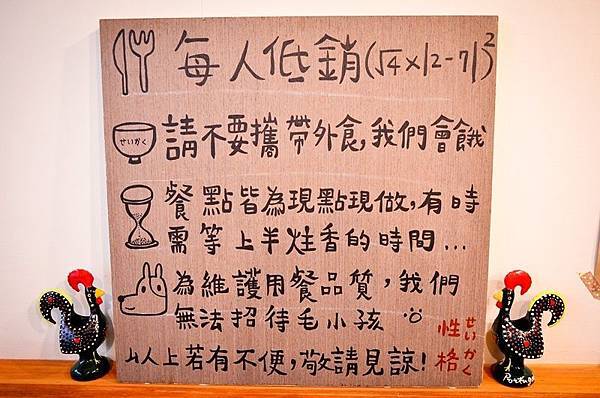 每人低銷(√4×|2-7|)²
せいがく
請不要攜帶外食,我們會餓
餐點皆為現點現做,有時
需等上半炷香的時間...
為維護用餐品質,我們
無法招待毛小孩
以上若有不便,敬請見諒!
性格
せいかく
Portugal